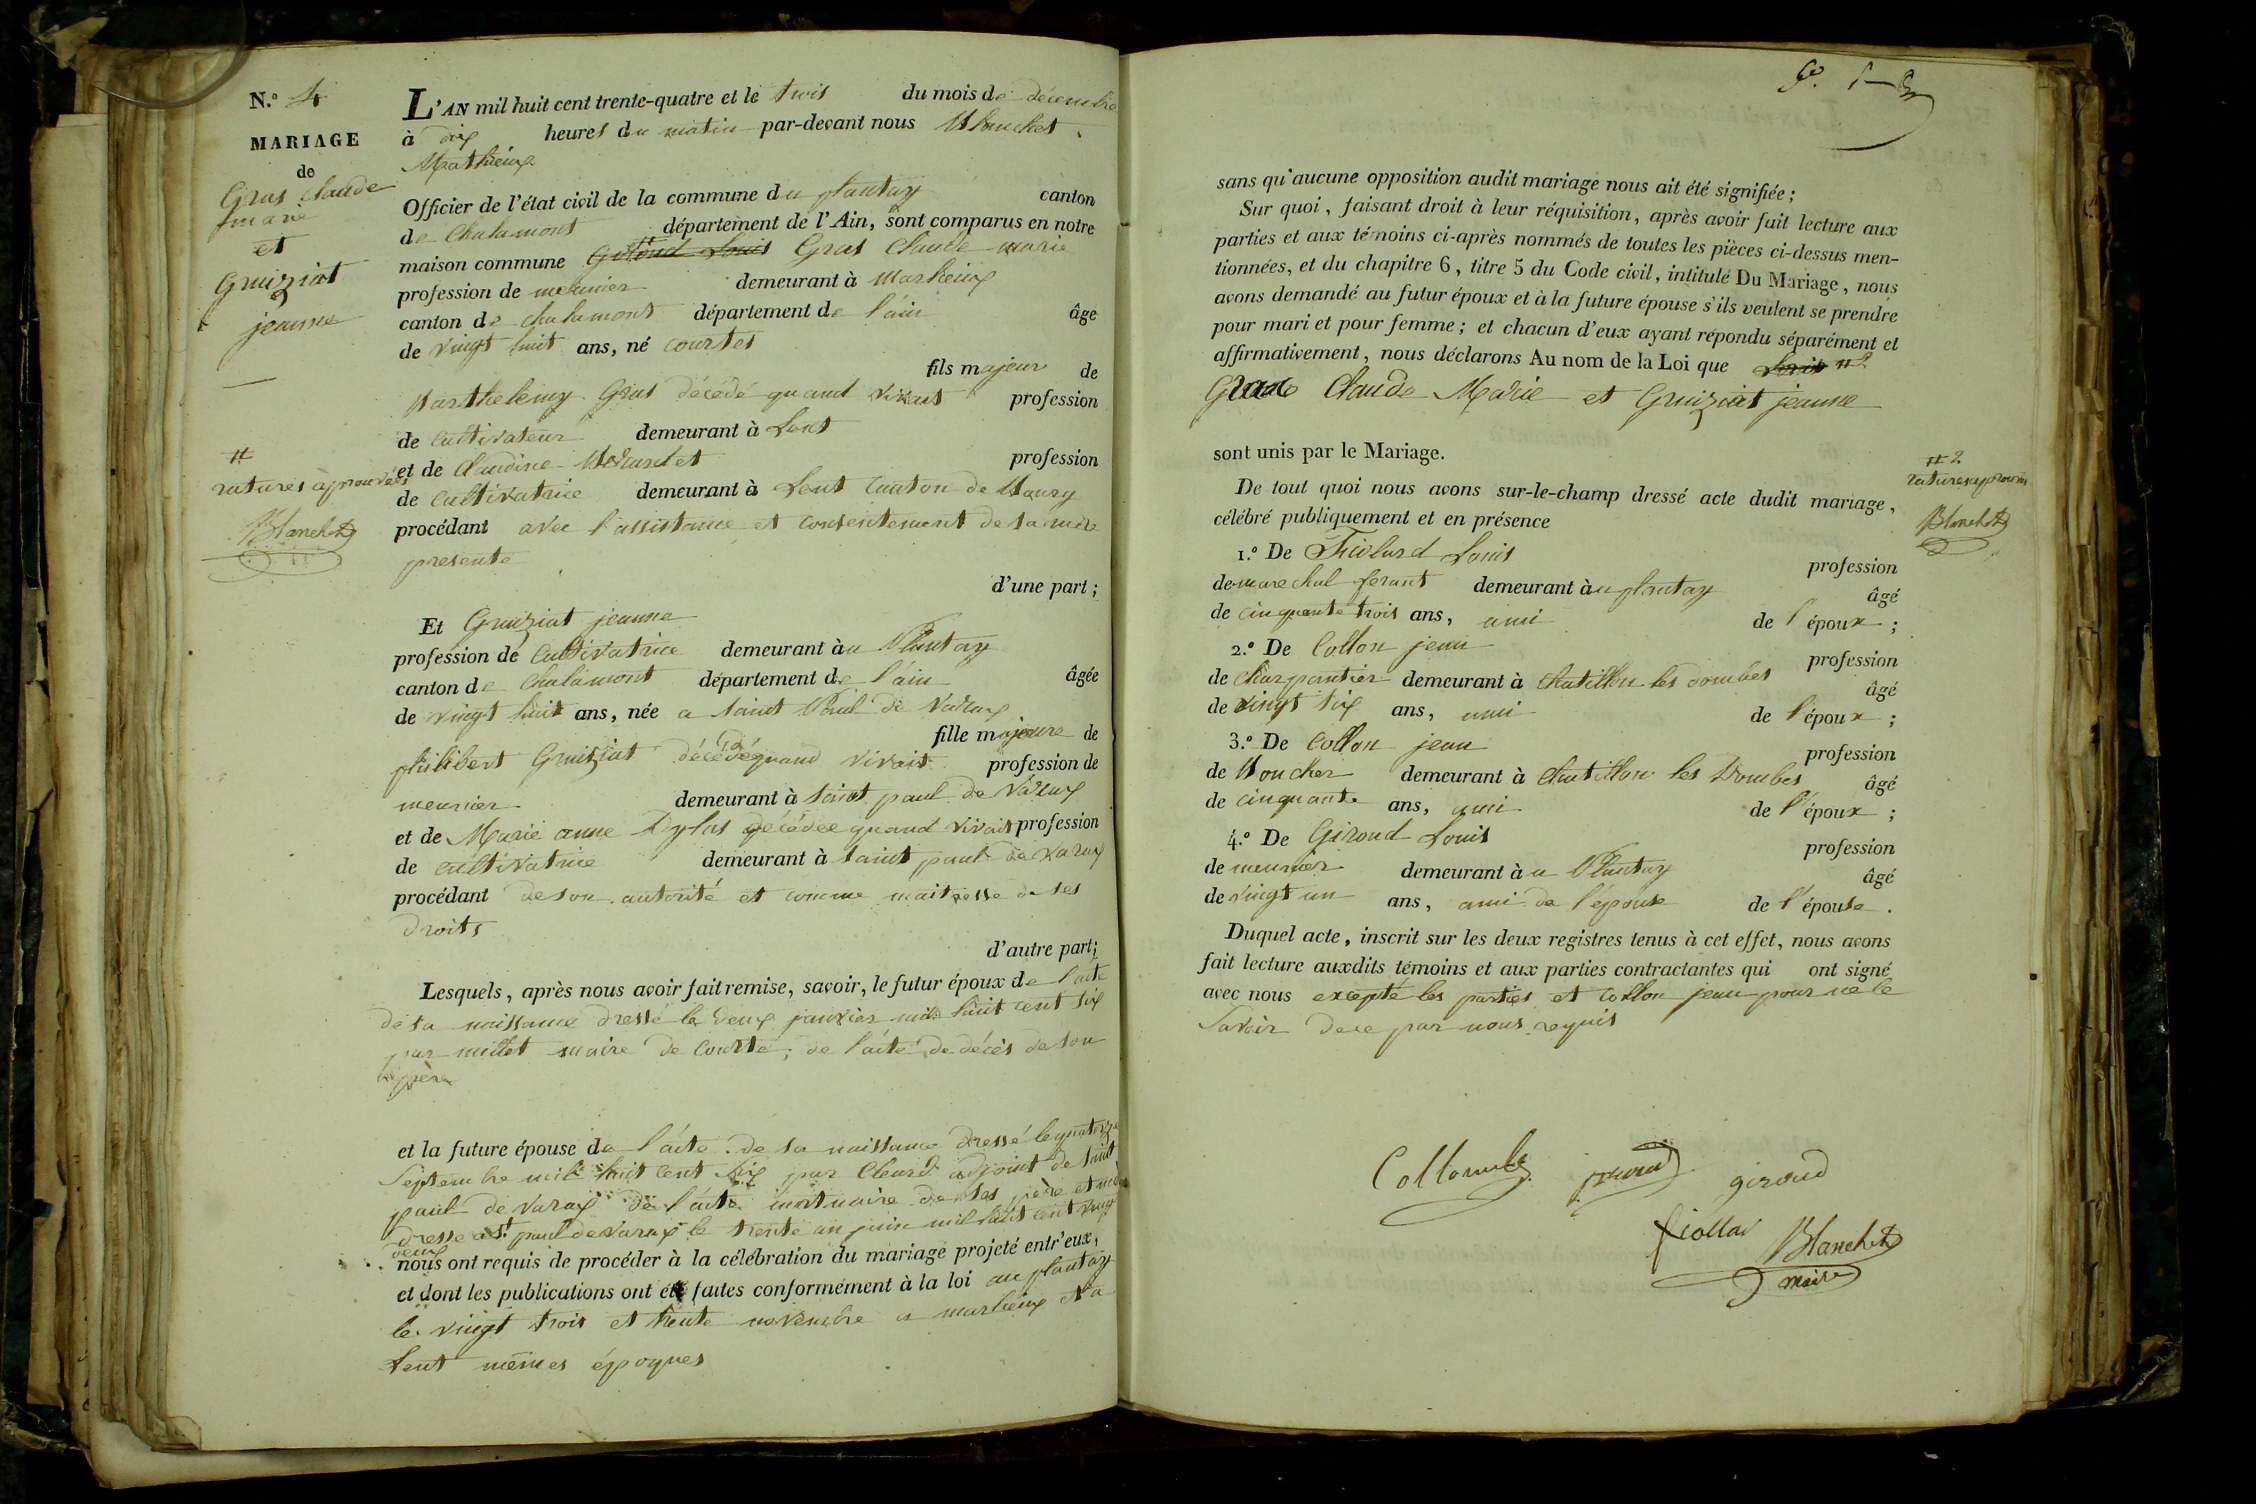 N.º 4
MARIAGE
de
Gras Claude
marie
et
Guizziat
jeanne
#
ratures aprouvées
Blanchet
L'AN mil huit cent trente-quatre et le trois du mois de décembre
à dix heures du matin par-devant nous Blanchet
Mathieux
Officier de l'état civil de la commune du plantay canton
de Chalamont département de l'Ain, sont comparus en notre
maison commune Giroud Louis Gras Claude marie
profession de meunier demeurant à Marlieux
canton de chalamont département de l'ain âge
de vingt huit ans, né courtes
fils majeur de
Barthelemy Gras décédé quand vivait profession
de cultivateur demeurant à Lent
et de Claudine profession
de cultivatrice demeurant à Lent canton de Bourg
procédant avec l'assistance et consentement de sa mère
presente
d'une part ;
Et Guiziat jeanne
profession de cultivatrice demeurant au Plantay
canton de Chalamont département de l'ain âgée
de vingt huit ans, née a saint Paul de Varax
fille majeure de
philibert Guiziat décédé quand vivait profession de
meunier demeurant à saint paul de Varax
et de Marie anne décédée quand vivait profession
de cultivatrice demeurant à saint paul de varax
procédant de son autorité et comme maitresse de ses
droits
d'autre part;
Lesquels, après nous avoir fait remise, savoir, le futur époux de l'acte
de sa naissance dressé le deux janvier mil huit cent six
par millet maire de Courte, de l'acte de décès de son
père
et la future épouse de l'acte de sa naissance dressé le quatorze
Septembre mil huit cent six par adjoint de saint
paul de varax de l'acte mortuaire de ses père et mère
dresse a St paul de varax le trente un juin mil huit cent vingt
deux
nous ont requis de procéder à la célébration du mariage projeté entr'eux,
et dont les publications ont été faites conformément à la loi au plantay
le vingt trois et trente novembre a marlieux et a
Lent mêmes époques
sans qu'aucune opposition audit mariage nous ait été signifiée ;
Sur quoi, faisant droit à leur réquisition, après avoir fait lecture aux
parties et aux témoins ci-après nommés de toutes les pièces ci-dessus men-
tionnées, et du chapitre 6, titre 5 du Code civil, intitulé Du Mariage, nous
avons demandé au futur époux et à la future épouse s'ils veulent se prendre
pour mari et pour femme ; et chacun d'eux ayant répondu séparément et
affirmativement, nous déclarons Au nom de la Loi que Louis #2
Gras Claude Marie et Guiziat jeanne
sont unis par le Mariage.
De tout quoi nous avons sur-le-champ dressé acte dudit mariage,
célébré publiquement et en présence
1.º De Louis
profession
de marechal ferant demeurant au plantay âgé
de cinquante trois ans, ami de l'époux ;
2.º De Collon jean
profession
de charpantier demeurant à chatillon les dombes âgé
de vingt six ans, ami de l'époux ;
3.º De Collon jean
profession
de Boucher demeurant à Chatillon les Dombes âgé
de cinquante ans, ami de l'époux ;
4.º De Giroud Louis
profession
de meunier demeurant au Plantay âgé
de vingt un ans, ami de l'épouse de l'épouse.
Duquel acte, inscrit sur les deux registres tenus à cet effet, nous avons
fait lecture auxdits témoins et aux parties contractantes qui ont signé
avec nous excepté les parties et Collon jean pour ne le
Savoir de ce par nous requis
#2
ratures aprouvées
Blanchet
giroud
Blanchet
maire